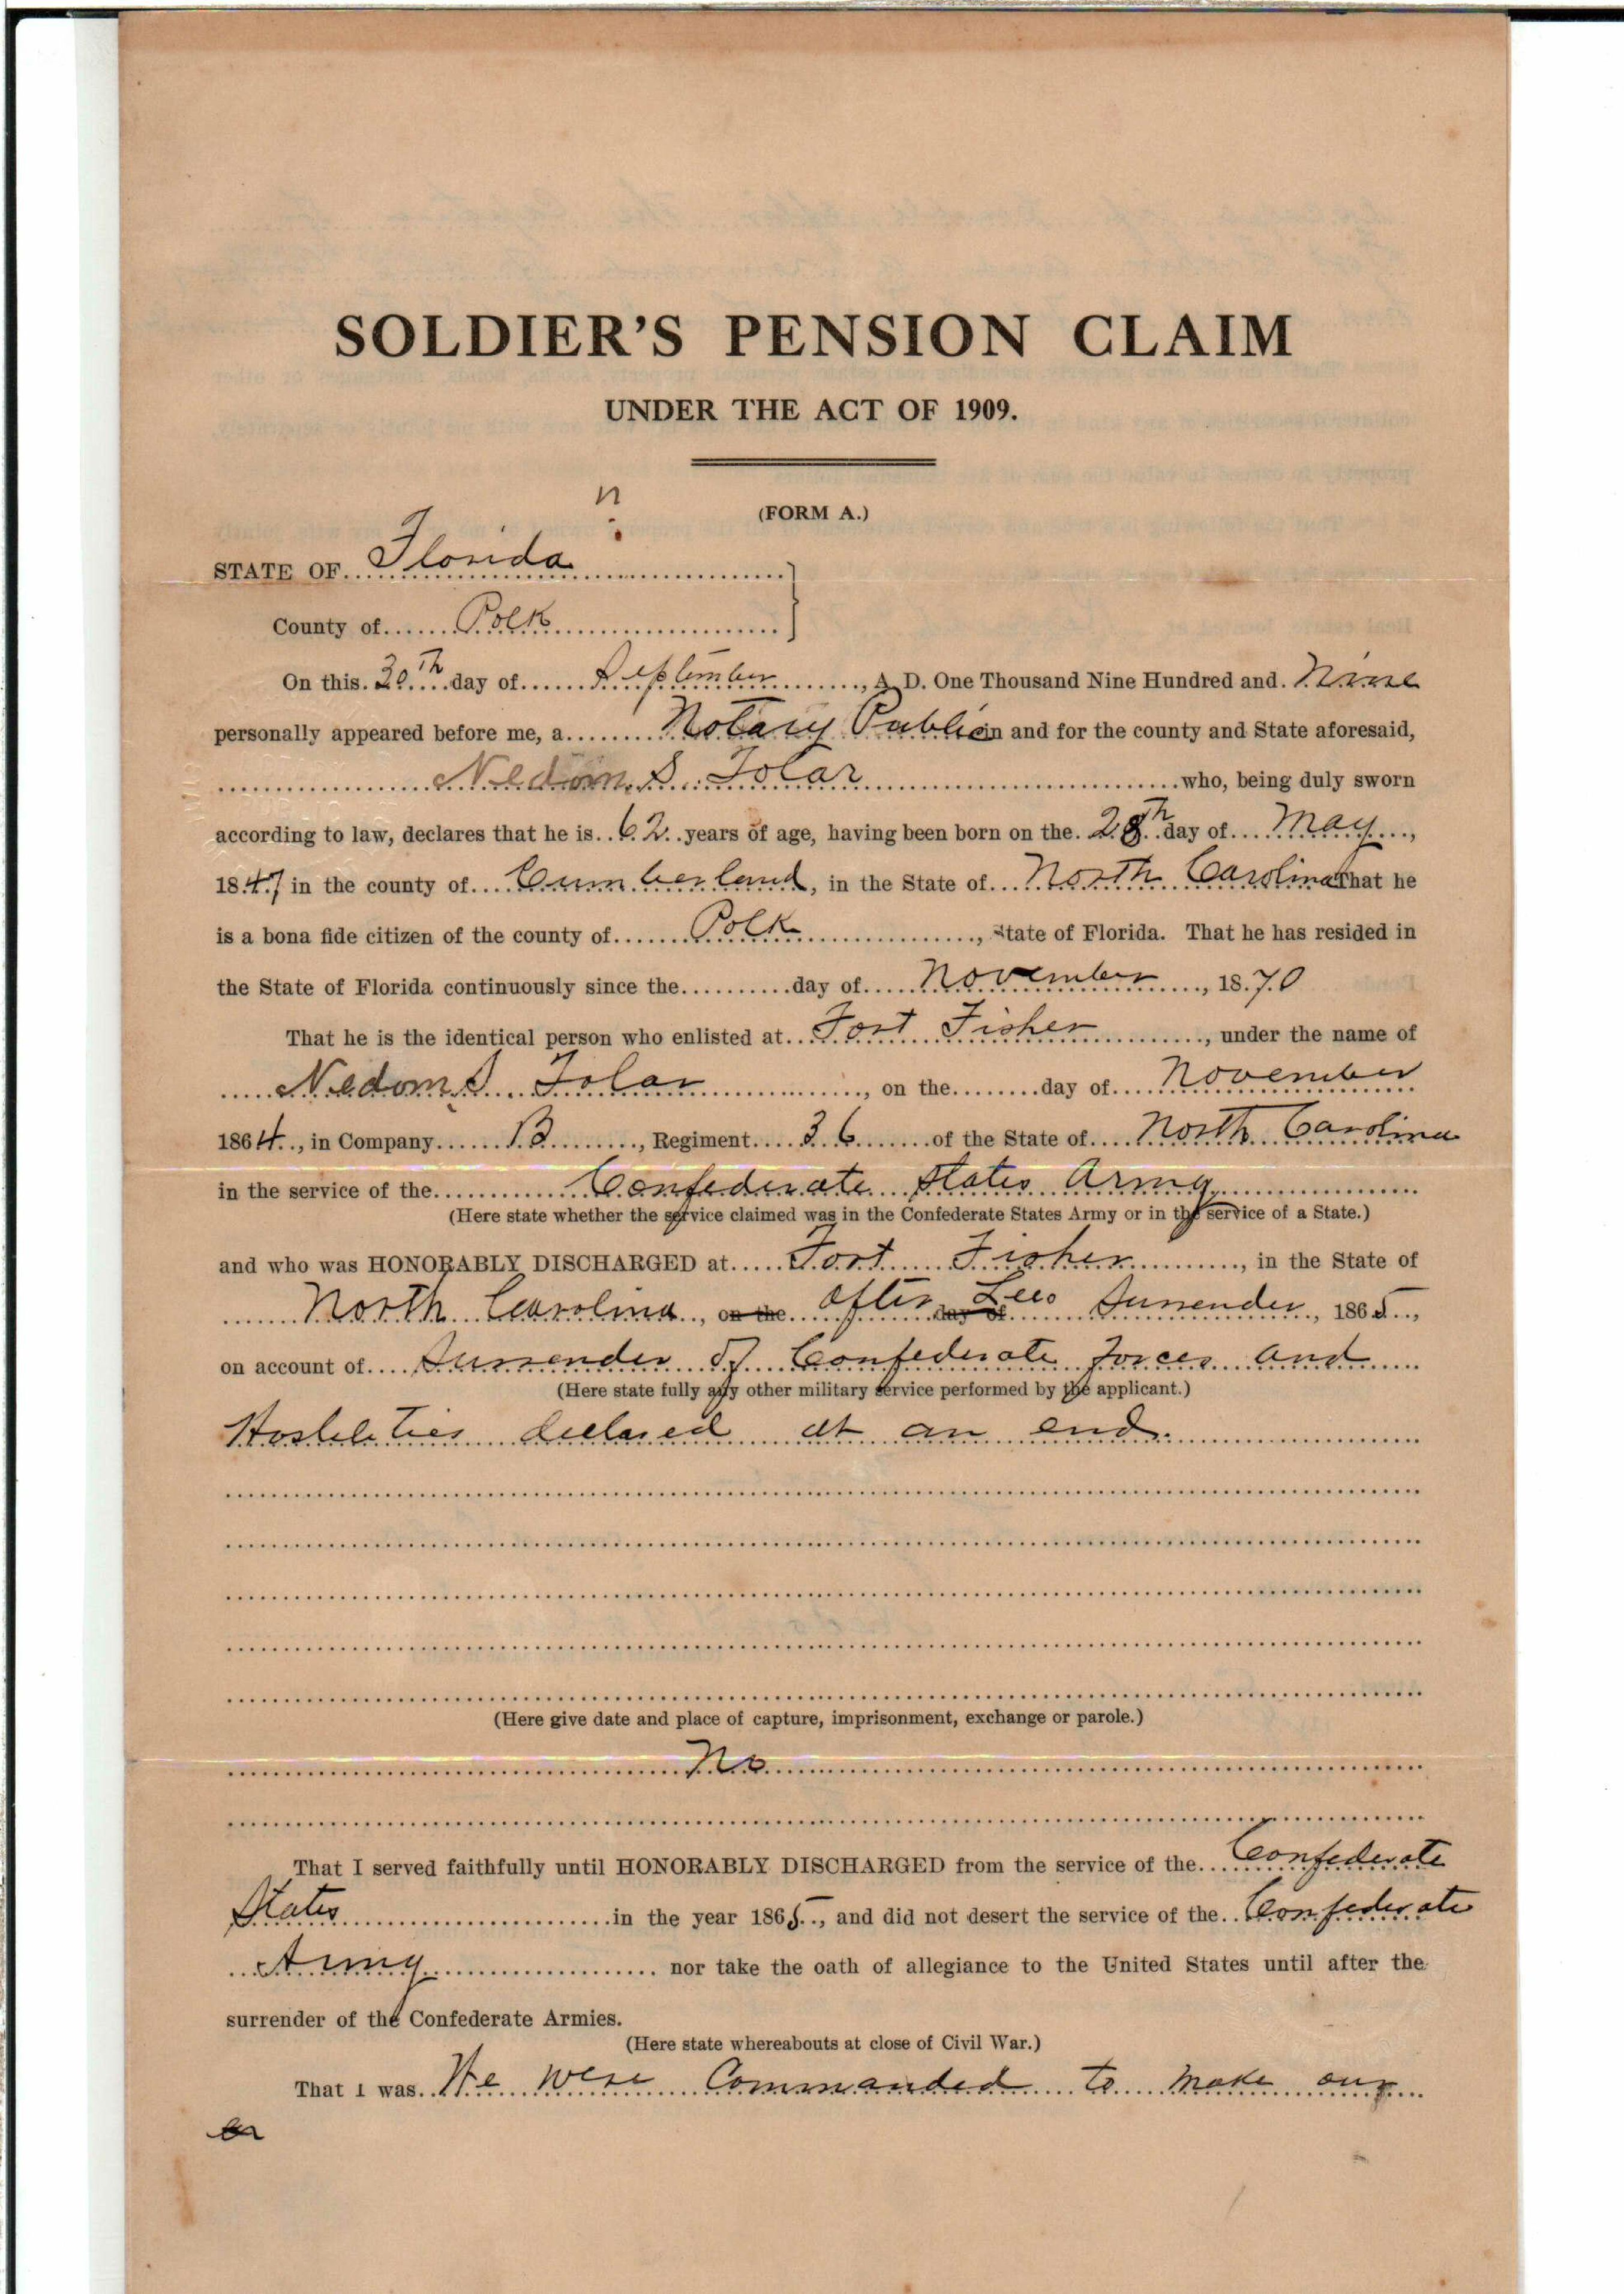 SOLDIER'S PENSION CLAIM
UNDER THE ACT OF 1909.
n
(FORM A.)
STATE OF Florida
County of Polk
On this 30th day of September, A. D. One Thousand Nine Hundred and Nine
personally appeared before me, a Notary Public in and for the county and State aforesaid,
Nedom S. Tolar who, being duly sworn
according to law, declares that he is 62 years of age, having been born on the 28th day of May,
1847 in the county of Cumberland, in the State of North Carolina That he
is a bona fide citizen of the county of Polk, State of Florida. That he has resided in
the State of Florida continuously since the day of November, 1870
That he is the identical person who enlisted at Fort Fisher, under the name of
Nedom S. Tolar, on the day of November
1864, in Company B, Regiment 36 of the State of North Carolina
in the service of the Confederate States Army
(Here state whether the service claimed was in the Confederate States Army or in the service of a State.)
and who was HONORABLY DISCHARGED at Fort Fisher, in the State of
North Carolina, on the After day of Lees Surrender, 1865,
on account of Surrender of Confederate forces and
(Here state fully any other military service performed by the applicant.)
Hostileties declared at an end.
(Here give date and place of capture, imprisonment, exchange or parole.)
No
That I served faithfully until HONORABLY DISCHARGED from the service of the Confederate
States in the year 1865, and did not desert the service of the Confederate
Army nor take the oath of allegiance to the United States until after the
surrender of the Confederate Armies.
(Here state whereabouts at close of Civil War.)
That I was We were Commanded to make our